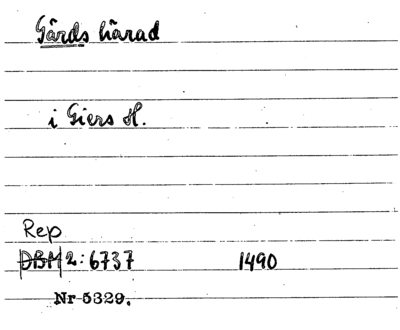 Gärds härad
i Giers H.
Rep
DBM 2: 6737 1490
Nr 5329.